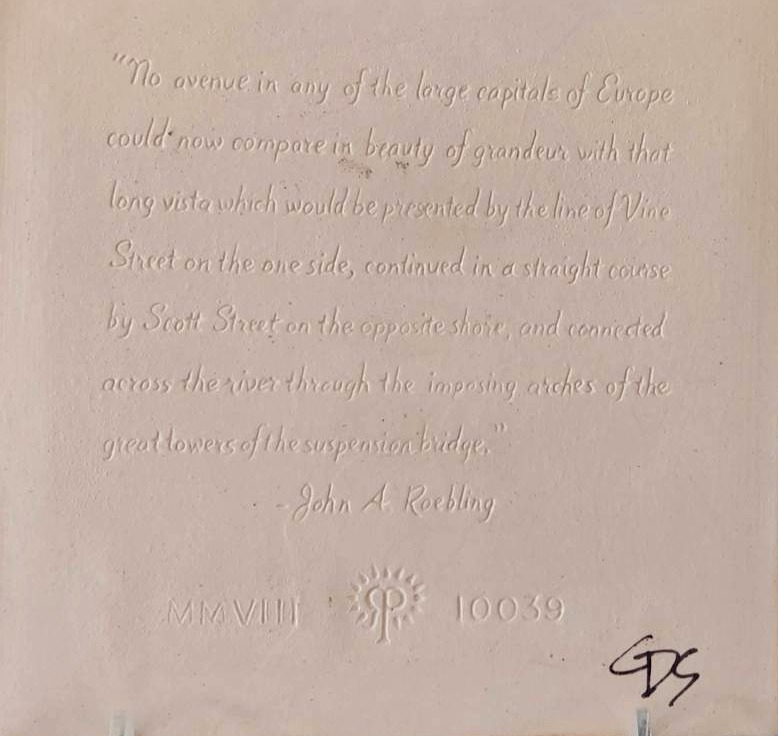 "No avenue in any of the large capitals of Europe
could now compare in beauty of grandeur with that
long vista which would be presented by the line of Vine
Street on the one side, continued in a straight course
by Scott Street on the opposite shore, and connected
across the river through the imposing arches of the
great towers of the suspension bridge."
- John A. Roebling
MMVIII RP 10039
GDS